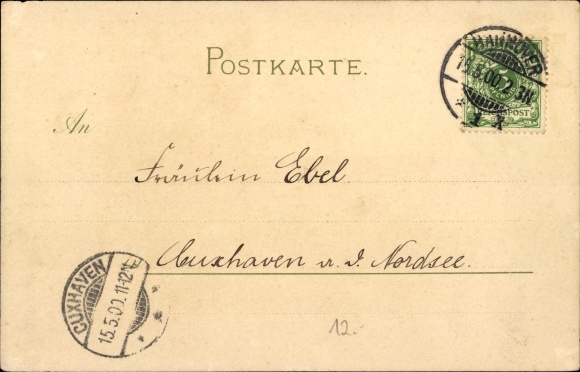 POSTKARTE.
HANNOVER
15.5.00.2-3N.
* 1 x
REICHSPOST
An
Fräulein Ebel.
Cuxhaven a. d. Nordsee.
CUXHAVEN
15.5.00.11-12N
* *
12.-